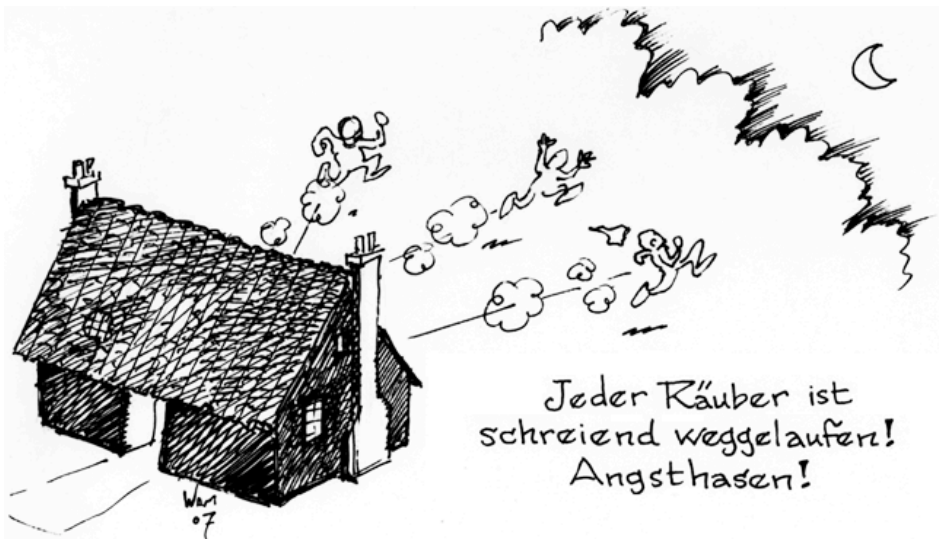 Jeder Räuber ist
schreiend weggelaufen!
Angsthasen!
07